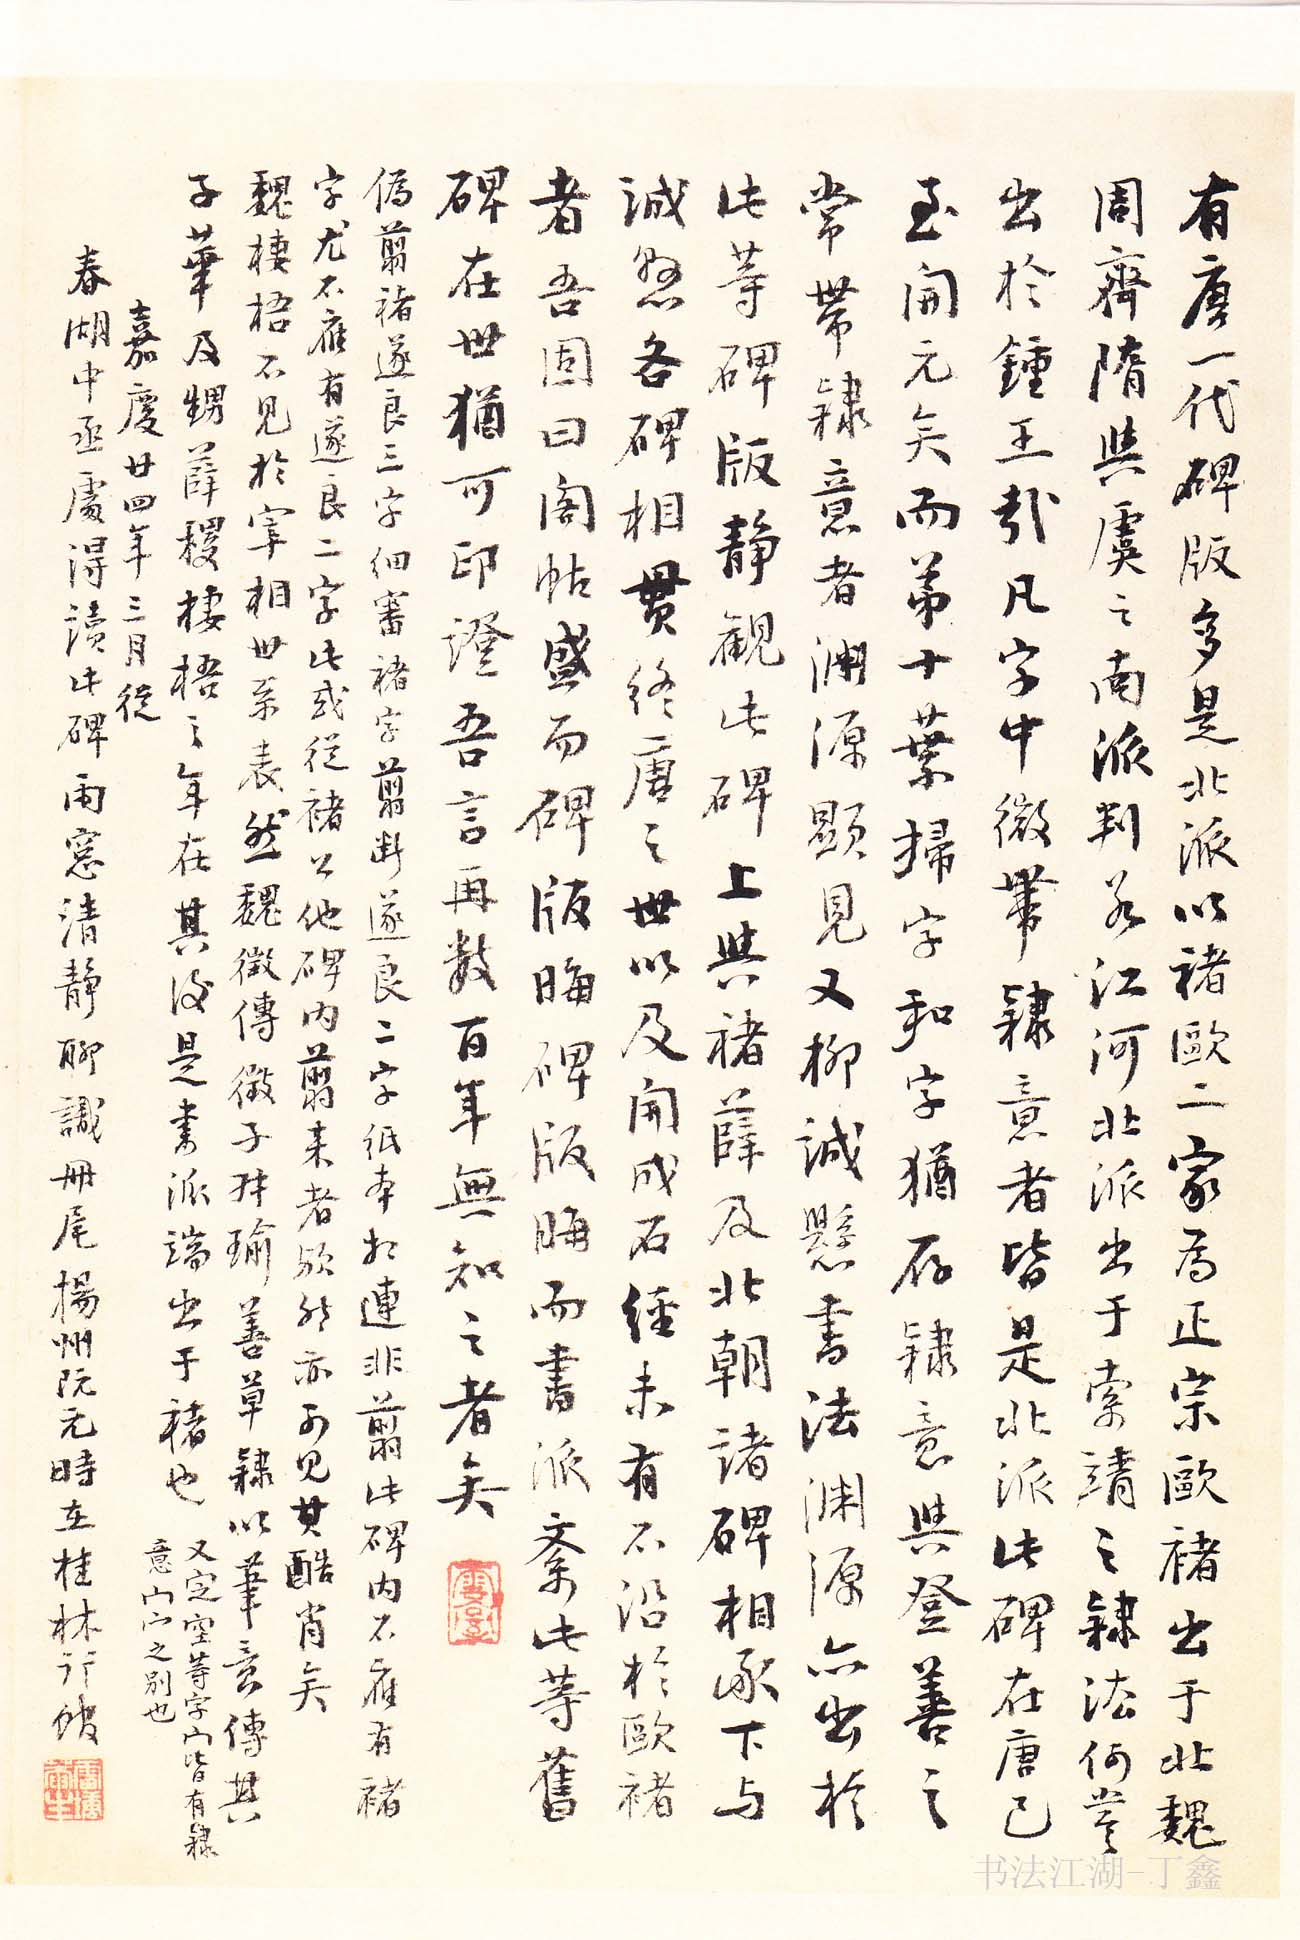 有唐一代碑版多是北派以褚歐二家為正宗歐褚出于北魏
周齊隋與虞之南派判若江河北派出于索靖之隸法何嘗
出於鍾王哉凡字中微帶隸意者皆是北派此碑在唐已
至開元矣而第十葉掃字和字猶存隸意與登善之
常帶隸意者淵源顯見又柳誠懸書法淵源亦出於
此等碑版靜觀此碑上與褚薛及北朝諸碑相承下与
誠懸各碑相貫終唐之世以及開成石經未有不沿於歐褚
者吾固曰閣帖盛而碑版晦碑版晦而書派紊此等舊
碑在世猶可印證吾言再數百年無知之者矣
偽翦褚遂良三字細審褚字翦斷遂良二字紙本相連非翦此碑內不應有褚
字尤不應有遂良二字此或從褚公他碑內翦來者歟然亦可見其酷肖矣
魏棲梧不見於宰相世系表然魏徵傳徵子叔瑜善草隸以筆意傳其
子華及甥薛稷棲梧之年在其後是書派端出于褚也
又定空等字宀皆有隸
意宀宀之別也
嘉慶廿四年三月從
春湖中丞處得讀此碑雨窓清靜聊識冊尾揚州阮元時在桂林行館
书法江湖-丁鑫